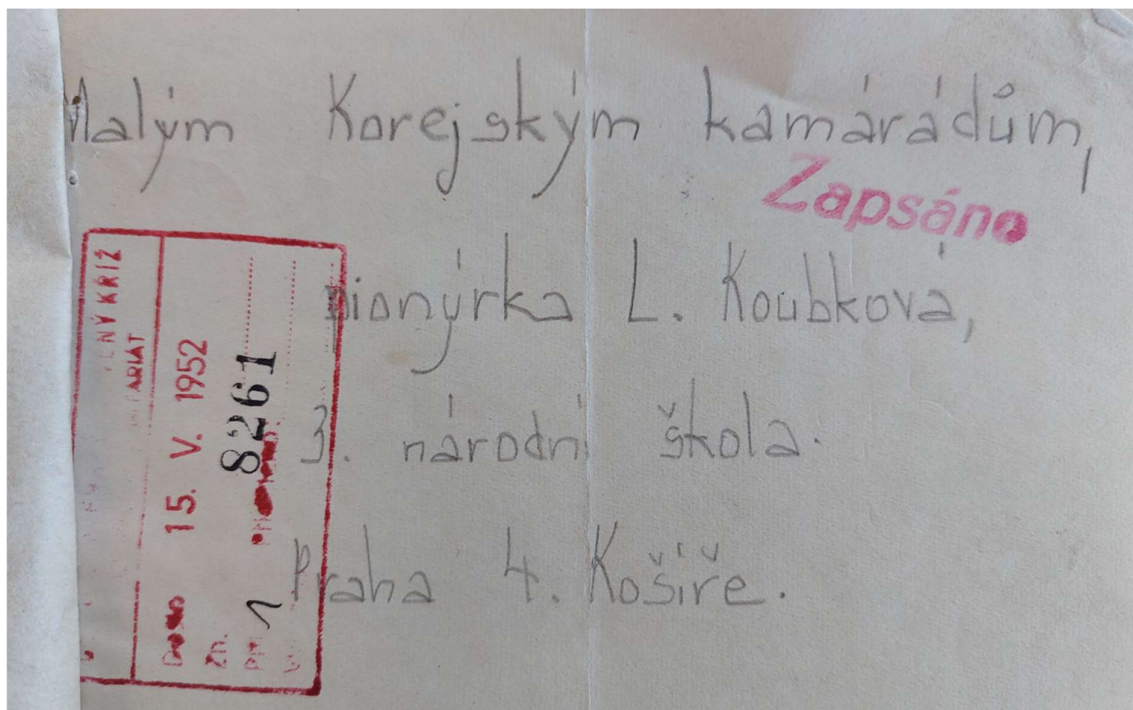 Malým Korejským kamárádům,
Zapsáno
pionýrka L. Koubková,
3. národní škola.
Praha 4. Košíře.
KŘÍŽ
15. V. 1952
8261
1